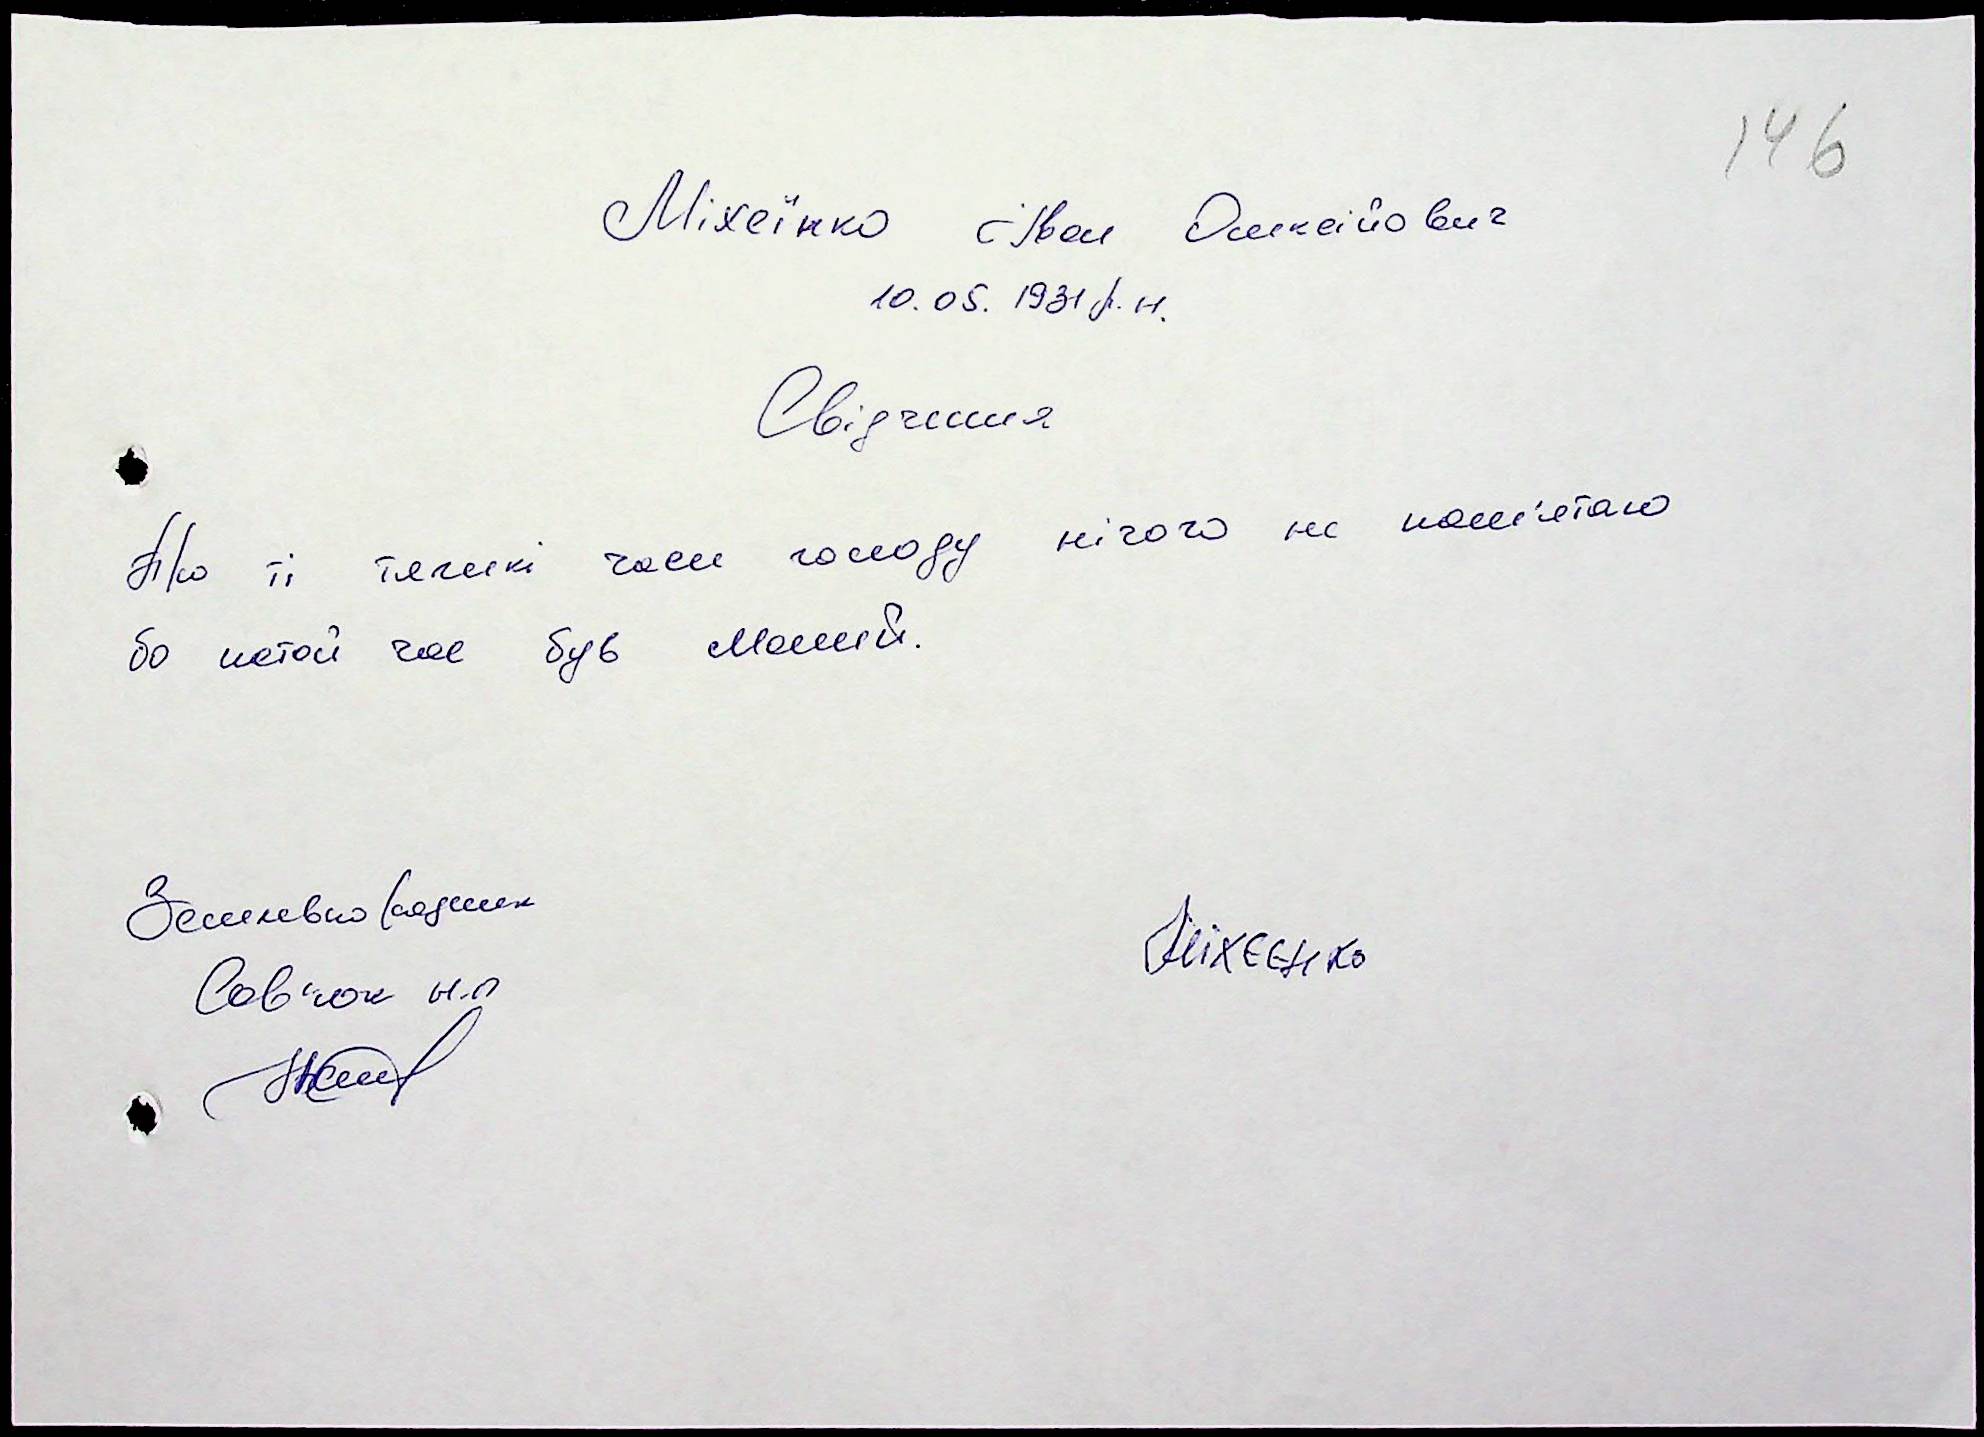 146
Міхеїнко Іван Олексійович
10.05.1931 р.н.
Свідчення
Про ті тяжкі часи голоду нічого не пам'ятаю
бо натой час був малий.
Землевпорядник
Сав'юк Н.П
Міхеєнко